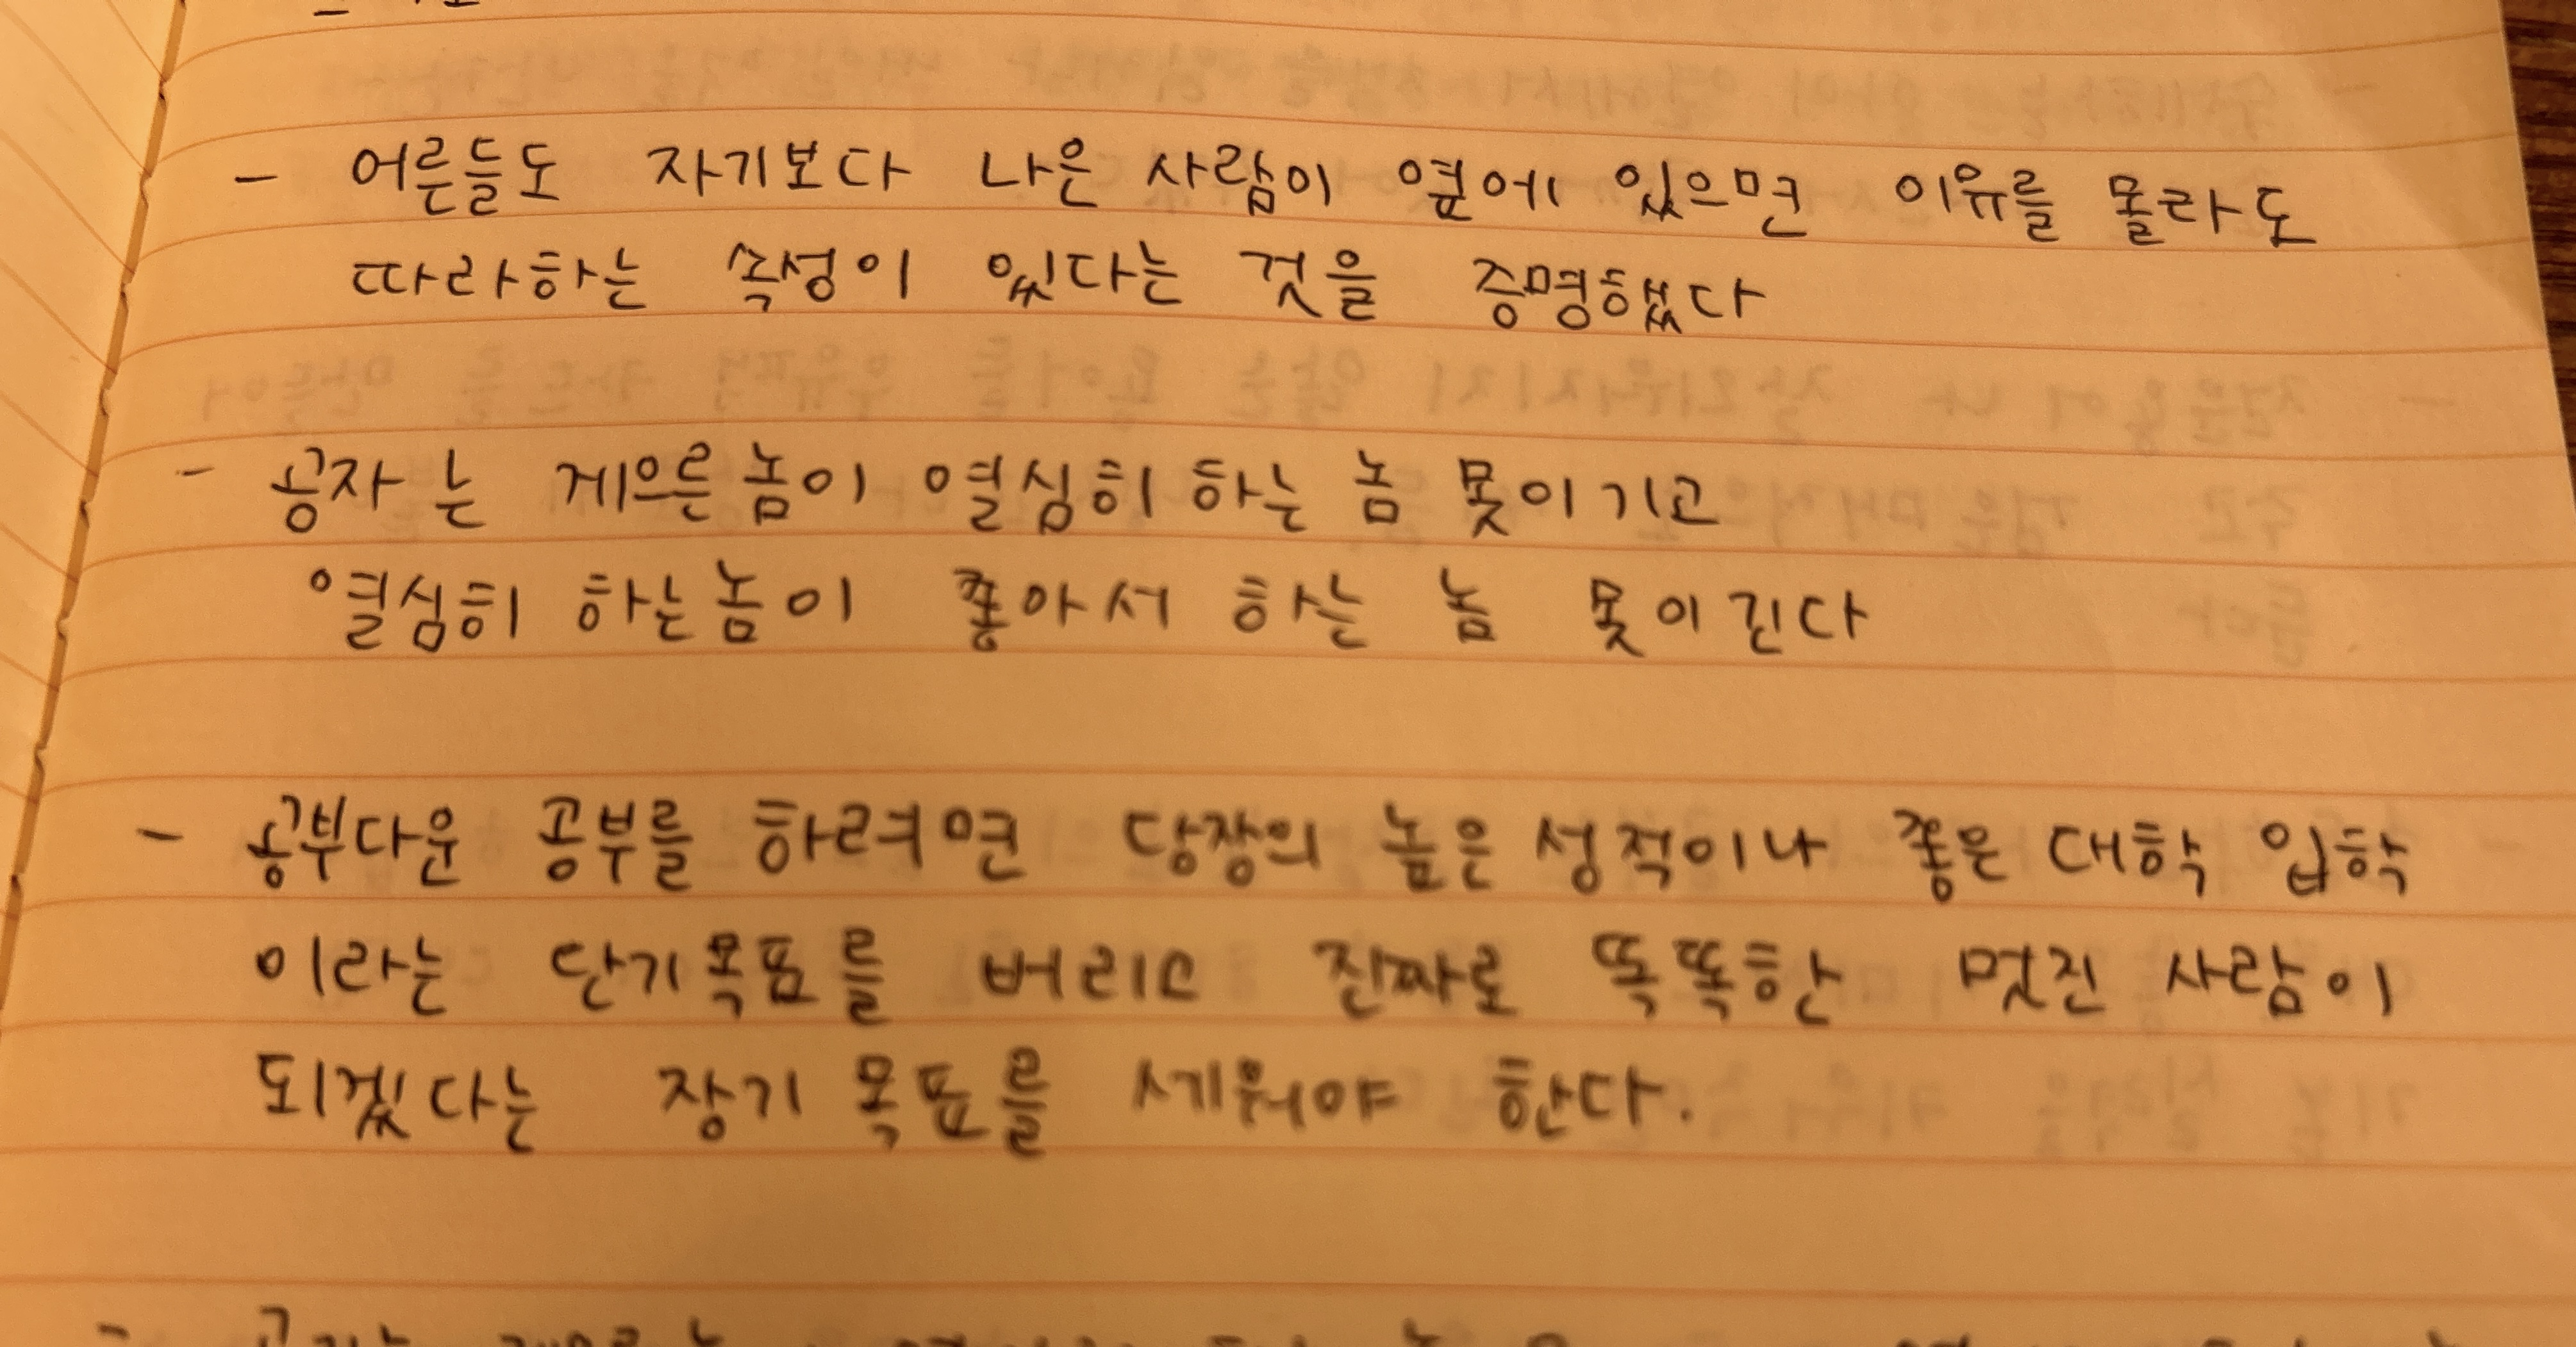 - 어른들도 자기보다 나은 사람이 옆에 있으면 이유를 몰라도
따라하는 속성이 있다는 것을 증명했다
- 공자는 게으른놈이 열심히 하는 놈 못이기고
열심히 하는놈이 좋아서 하는 놈 못이긴다
- 공부다운 공부를 하려면 당장의 높은 성적이나 좋은 대학 입학
이라는 단기목표를 버리고 진짜로 똑똑한 멋진 사람이
되겠다는 장기 목표를 세워야 한다.